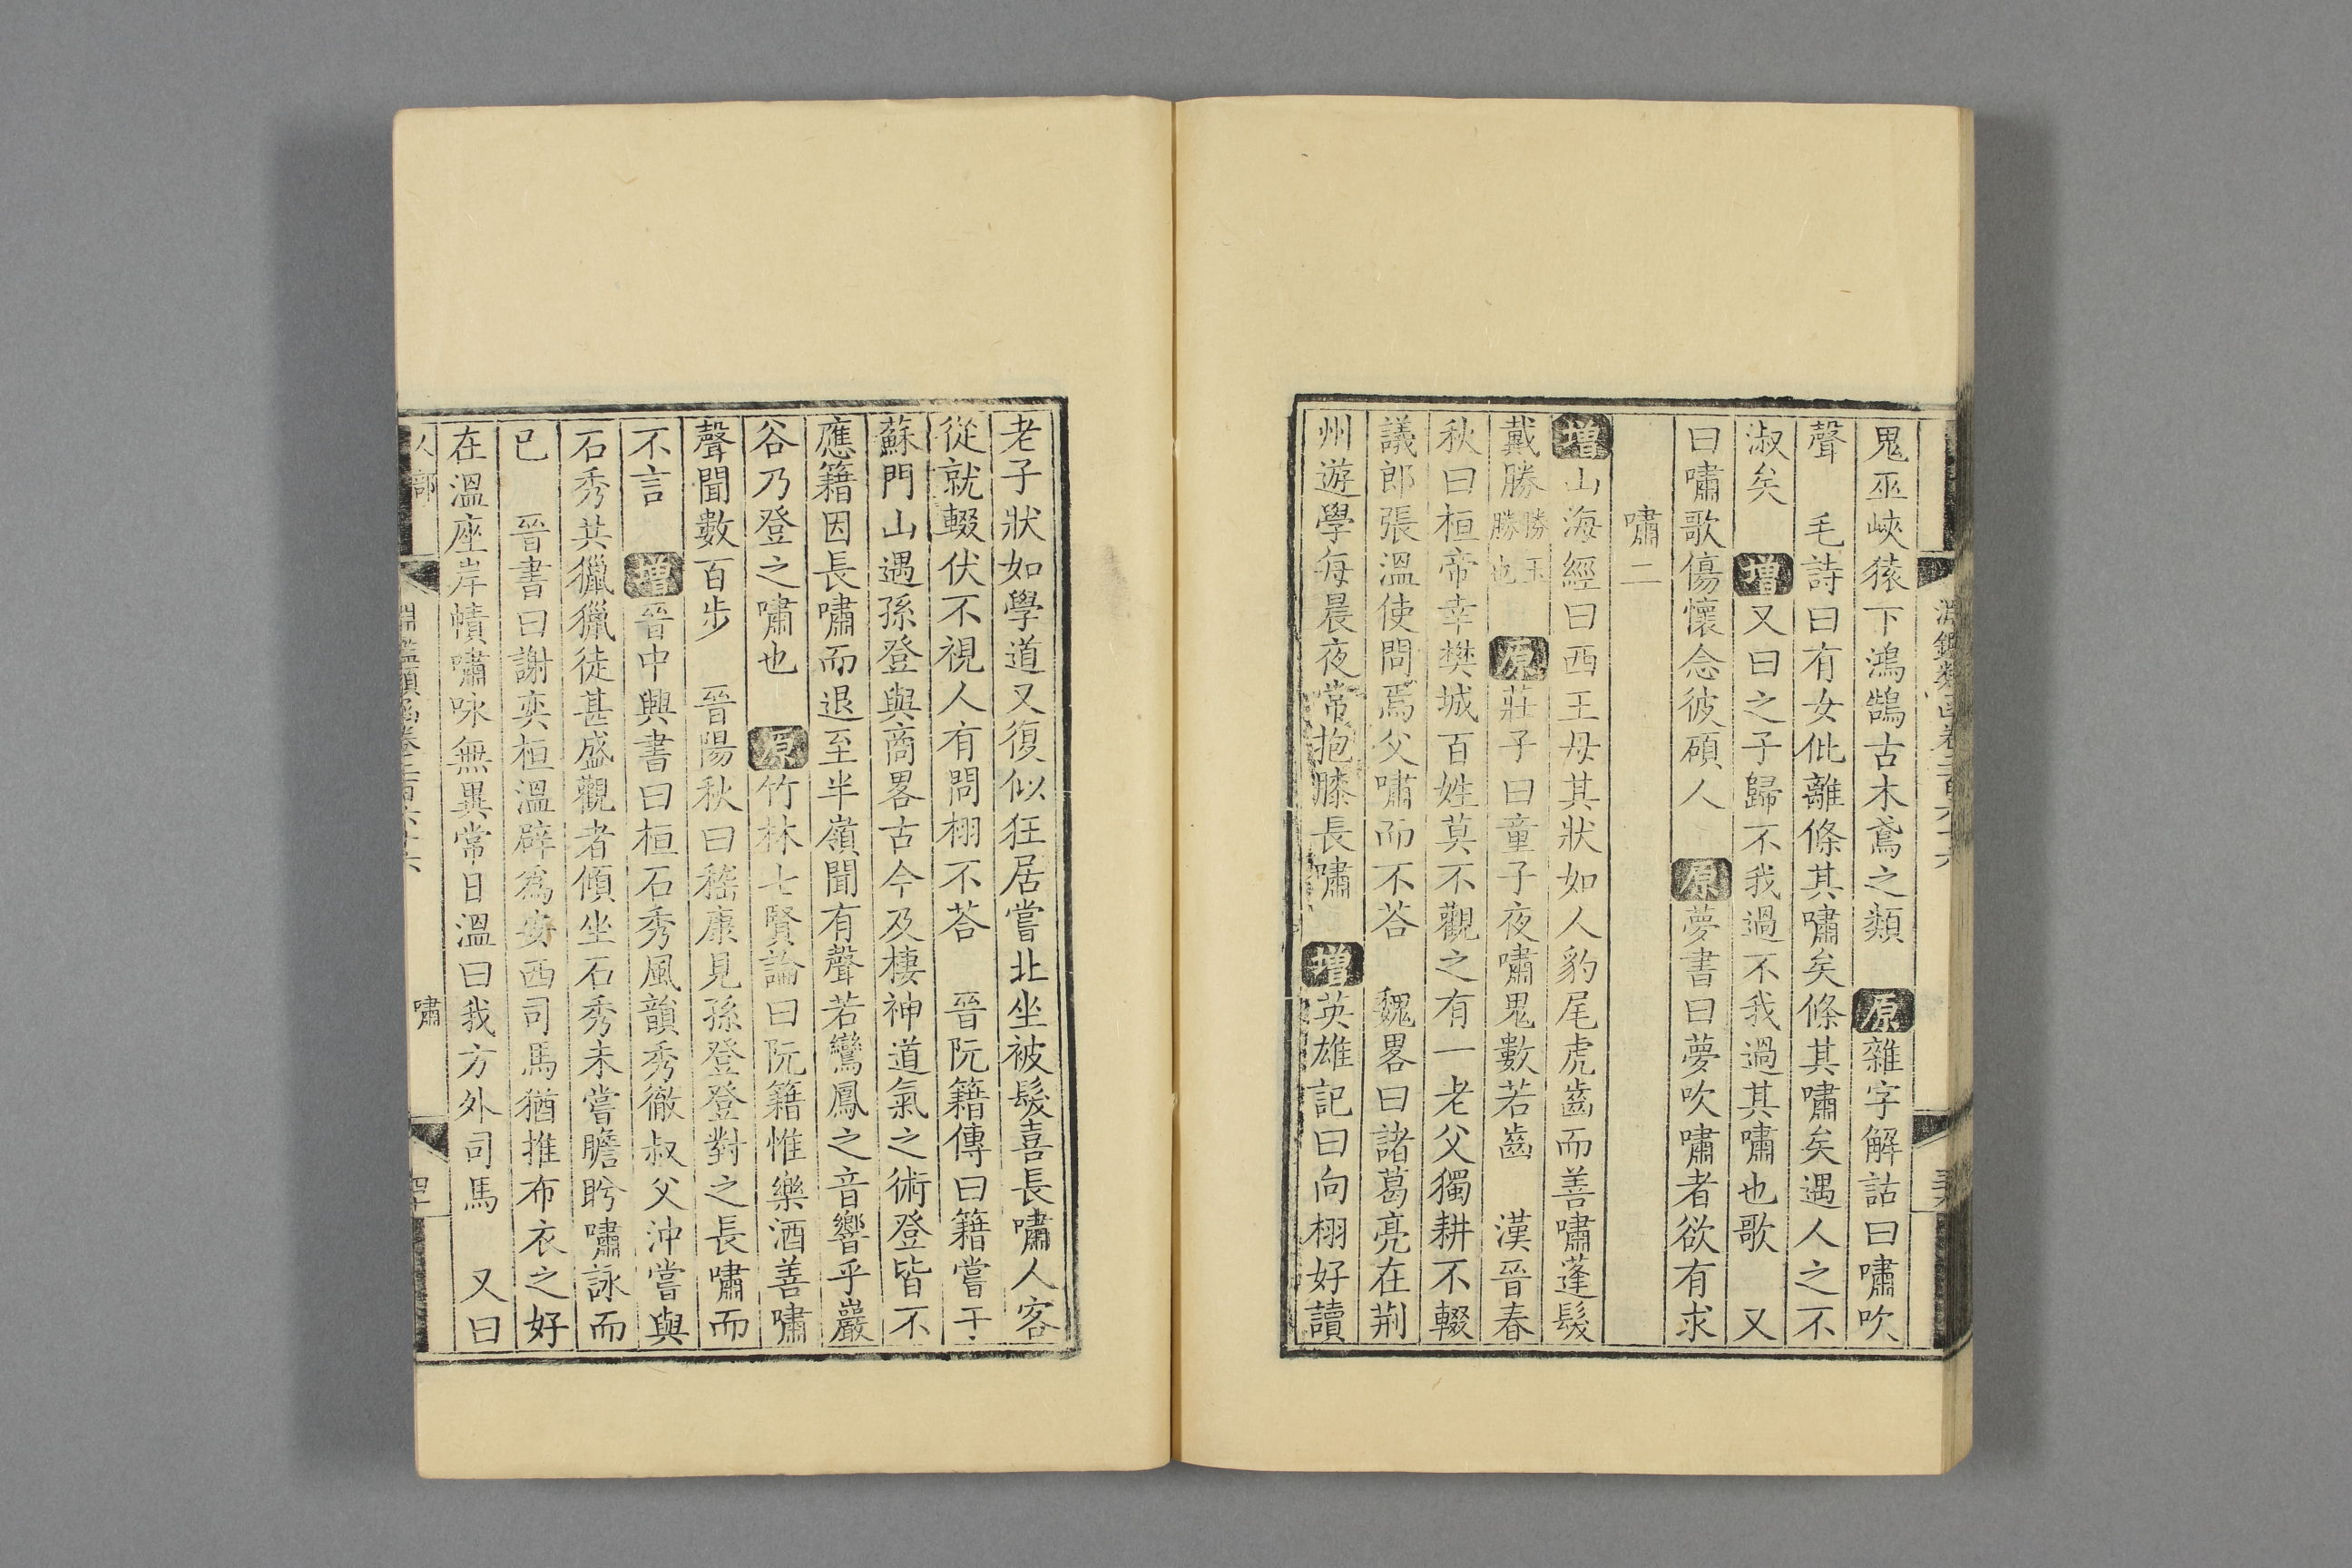 鬼巫峽猿下鴻鵠古木鳶之類　原雜字解詁曰嘯吹
聲　毛詩曰有女仳離條其嘯矣條其嘯矣遇人之不
淑矣　增又曰之子歸不我過不我過其嘯也歌　又
曰嘯歌傷懷念彼碩人　原夢書曰夢吹嘯者欲有求
嘯二
增山海經曰西王母其狀如人豹尾虎齒而善嘯蓬髮
戴勝勝玉勝也　原莊子曰童子夜嘯鬼數若齒　漢晉春
秋曰桓帝幸樊城百姓莫不觀之有一老父獨耕不輟
議郎張溫使問焉父嘯而不荅　魏畧曰諸葛亮在荆
州遊學每晨夜常抱膝長嘯　增英雄記曰向栩好讀
老子狀如學道又復似狂居嘗北坐被髮喜長嘯人客
從就輟伏不視人有問栩不荅　晉阮籍傳曰籍嘗于
蘇門山遇孫登與商畧古今及棲神道氣之術登皆不
應籍因長嘯而退至半嶺聞有聲若鸞鳳之音響乎巖
谷乃登之嘯也　原竹林七賢論曰阮籍惟樂酒善嘯
聲聞數百步　晉陽秋曰嵇康見孫登登對之長嘯而
不言　增晉中興書曰桓石秀風韻秀徹叔父沖嘗與
石秀共獵獵徒甚盛觀者傾坐石秀未嘗瞻盻嘯詠而
已　晉書曰謝奕桓溫辟為安西司馬猶推布衣之好
在溫座岸幘嘯咏無異常日溫曰我方外司馬　又曰
人部　淵鑑類函卷二百六十六　嘯